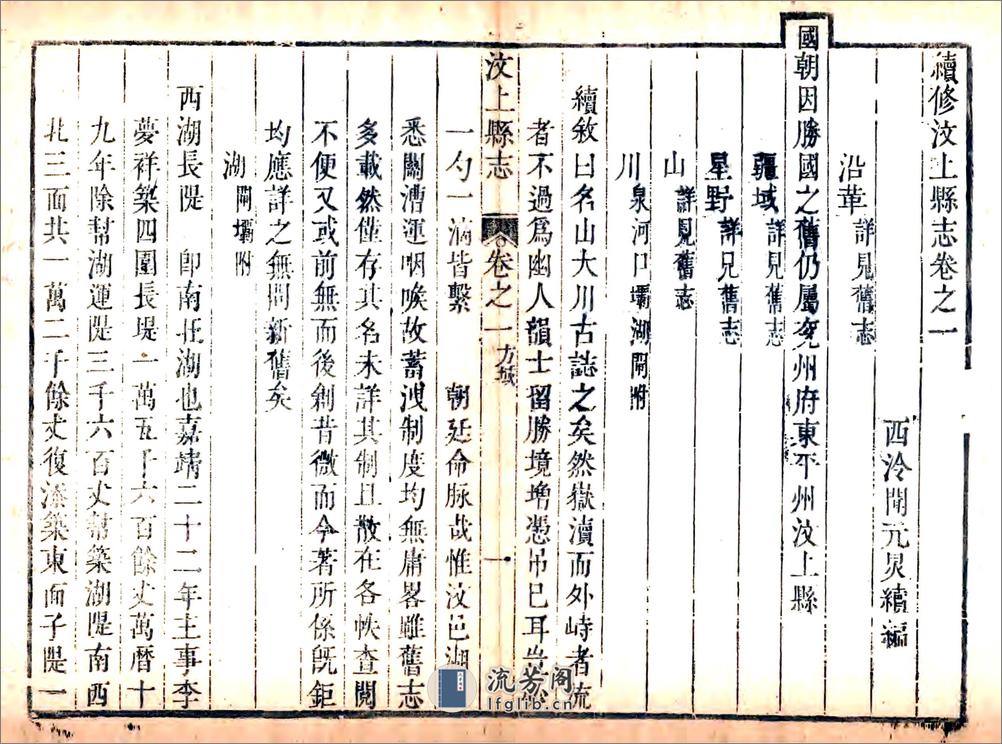 續修汶上縣志卷之一
西泠聞元炅續編
沿革詳見舊志
國朝因勝國之舊仍屬兖州府東平州汶上縣
疆域詳見舊志
星野詳見舊志
山詳見舊志
川泉河口壩湖閘附
續敘曰名山大川古誌之矣然嶽瀆而外峙者流
者不過爲幽人韻士留勝境增憑吊已耳豈
汶上縣志 卷之一方域 一
一勺一滴皆繫 朝廷命脉哉惟汶邑湖
悉關漕運咽喉故蓄洩制度均無庸畧雖舊志
多載然僅存其名未詳其制且散在各帙查閱
不便又或前無而後創昔微而今著所係旣鉅
均應詳之無問新舊矣
湖閘壩附
西湖長隄 卽南旺湖也嘉靖二十二年主事李
夢祥築四圍長堤一萬五千六百餘丈萬曆十
九年除幫湖運隄三千六百丈幫築湖隄南西
北三面共一萬二千餘丈復添築東面子隄一
流芳阁
lfglib.cn